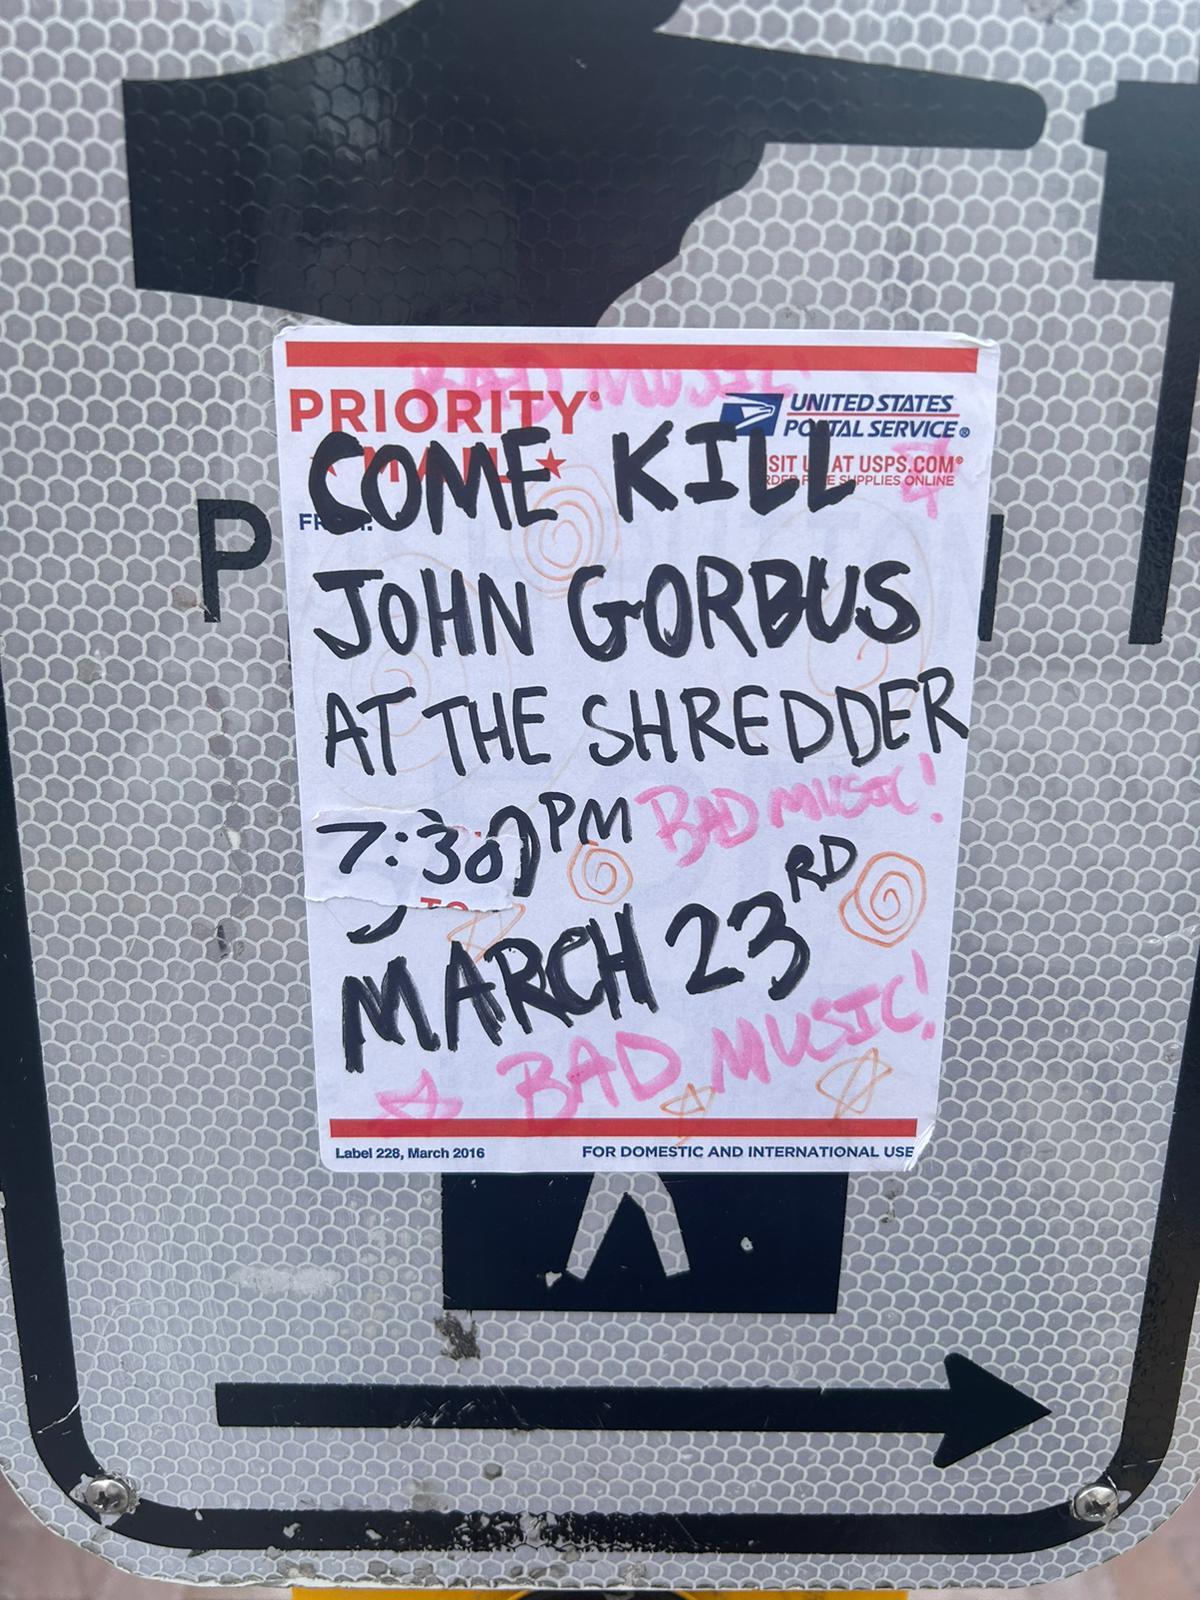 BAD MUSIC!
PRIORITY®
UNITED STATES
POSTAL SERVICE®
COME KILL
VISIT US AT USPS.COM®
ORDER FREE SUPPLIES ONLINE
FROM:
P
JOHN GORBUS
AT THE SHREDDER
7:30PM BAD MUSIC!
TO
MARCH 23RD
BAD MUSIC!
Label 228, March 2016 FOR DOMESTIC AND INTERNATIONAL USE